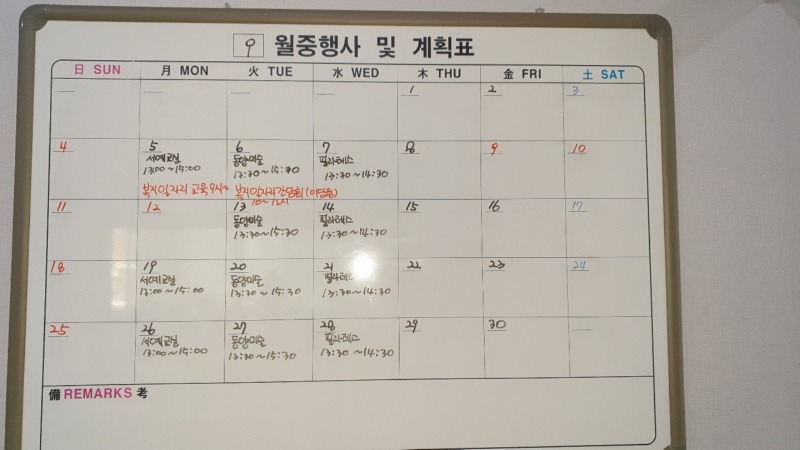 9 월중행사 및 계획표
日 SUN 月 MON 火 TUE 水 WED 木 THU 金 FRI 土 SAT
1 2 3
4 5 6 7 8 9 10
서예교실 동양미술 필라테스
13:00~15:00 13:30~15:30 13:30~14:30
복지일자리 교육 9시~ 복지일자리간담회
10~12시
11 12 13 14 15 16 17
동양미술 필라테스
13:30~15:30 13:30~14:30
18 19 20 21 22 23 24
서예교실 동양미술 필라테스
13:00~15:00 13:30~15:30 13:30~14:30
25 26 27 28 29 30
서예교실 동양미술 필라테스
13:00~15:00 13:30~15:30 13:30~14:30
備 REMARKS 考